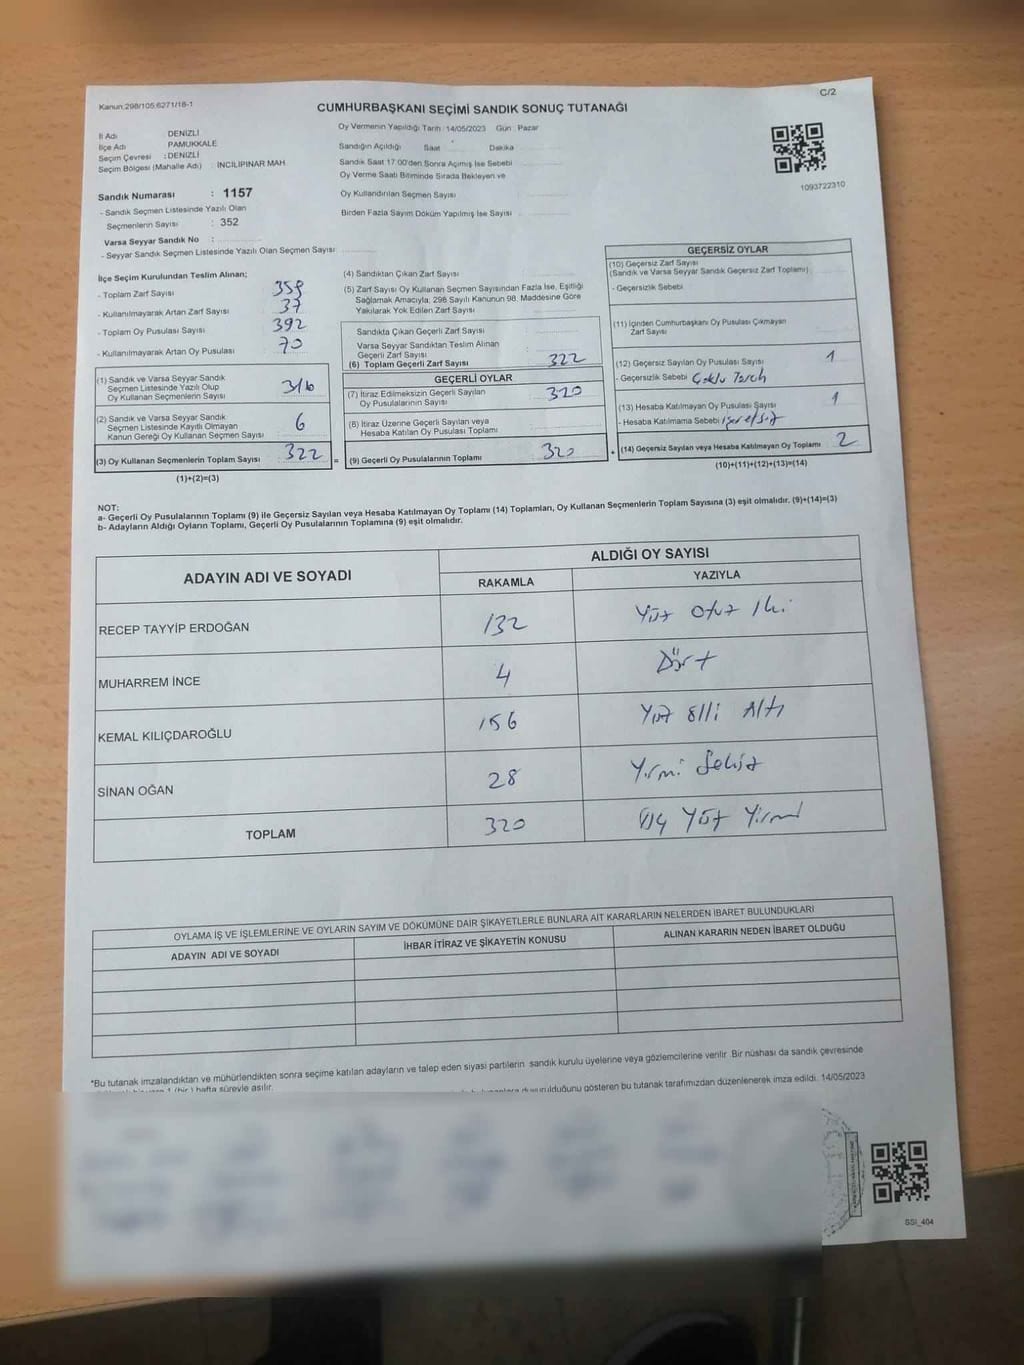 Kanun:298/105;6271/18-1
C/2
CUMHURBAŞKANI SEÇİMİ SANDIK SONUÇ TUTANAĞI
İl Adı DENİZLİ
İlçe Adı PAMUKKALE
Seçim Çevresi : DENİZLİ
Seçim Bölgesi (Mahalle Adı) İNCİLİPINAR MAH
Oy Vermenin Yapıldığı Tarih : 14/05/2023 Gün : Pazar
Sandığın Açıldığı Saat Dakika
Sandık Saat 17.00'den Sonra Açımış İse Sebebi
Oy Verme Saati Bitiminde Sırada Bekleyen ve
Oy Kullandırılan Seçmen Sayısı
Birden Fazla Sayım Döküm Yapılmış İse Sayısı
1093722310
Sandık Numarası : 1157
- Sandık Seçmen Listesinde Yazılı Olan
Seçmenlerin Sayısı : 352
Varsa Seyyar Sandık No :
- Seyyar Sandık Seçmen Listesinde Yazılı Olan Seçmen Sayısı
İlçe Seçim Kurulundan Teslim Alınan;
- Toplam Zarf Sayısı 359
- Kullanılmayarak Artan Zarf Sayısı 37
- Toplam Oy Pusulası Sayısı 392
- Kullanılmayarak Artan Oy Pusulası 70
(1) Sandık ve Varsa Seyyar Sandık
Seçmen Listesinde Yazılı Olup
Oy Kullanan Seçmenlerin Sayısı 316
(2) Sandık ve Varsa Seyyar Sandık
Seçmen Listesinde Kayıtlı Olmayan
Kanun Gereği Oy Kullanan Seçmen Sayısı 6
(3) Oy Kullanan Seçmenlerin Toplam Sayısı 322 =
(1)+(2)=(3)
(4) Sandıktan Çıkan Zarf Sayısı
(5) Zarf Sayısı Oy Kullanan Seçmen Sayısından Fazla İse, Eşitliği
Sağlamak Amacıyla; 298 Sayılı Kanunun 98. Maddesine Göre
Yakılarak Yok Edilen Zarf Sayısı
Sandıkta Çıkan Geçerli Zarf Sayısı
Varsa Seyyar Sandıktan Teslim Alınan
Geçerli Zarf Sayısı
(6) Toplam Geçerli Zarf Sayısı 322
GEÇERLİ OYLAR
(7) İtiraz Edilmeksizin Geçerli Sayılan
Oy Pusulalarının Sayısı 320
(8) İtiraz Üzerine Geçerli Sayılan veya
Hesaba Katılan Oy Pusulası Toplamı
(9) Geçerli Oy Pusulalarının Toplamı 320 +
GEÇERSİZ OYLAR
(10) Geçersiz Zarf Sayısı
(Sandık ve Varsa Seyyar Sandık Geçersiz Zarf Toplamı)
- Geçersizlik Sebebi
(11) İçinden Cumhurbaşkanı Oy Pusulası Çıkmayan
Zarf Sayısı
(12) Geçersiz Sayılan Oy Pusulası Sayısı 1
- Geçersizlik Sebebi Çoklu Tercih
(13) Hesaba Katılmayan Oy Pusulası Sayısı 1
- Hesaba Katılmama Sebebi
(14) Geçersiz Sayılan veya Hesaba Katılmayan Oy Toplamı 2
(10)+(11)+(12)+(13)=(14)
NOT:
a- Geçerli Oy Pusulalarının Toplamı (9) ile Geçersiz Sayılan veya Hesaba Katılmayan Oy Toplamı (14) Toplamları, Oy Kullanan Seçmenlerin Toplam Sayısına (3) eşit olmalıdır. (9)+(14)=(3)
b- Adayların Aldığı Oyların Toplamı, Geçerli Oy Pusulalarının Toplamına (9) eşit olmalıdır.
ADAYIN ADI VE SOYADI ALDIĞI OY SAYISI
RAKAMLA YAZIYLA
RECEP TAYYİP ERDOĞAN 132 Yüz Otuz İki
MUHARREM İNCE 4 Dört
KEMAL KILIÇDAROĞLU 156 Yüz Elli Altı
SİNAN OĞAN 28 Yirmi Sekiz
TOPLAM 320 Üç Yüz Yirmi
OYLAMA İŞ VE İŞLEMLERİNE VE OYLARIN SAYIM VE DÖKÜMÜNE DAİR ŞİKAYETLERLE BUNLARA AİT KARARLARIN NELERDEN İBARET BULUNDUKLARI
ADAYIN ADI VE SOYADI İHBAR İTİRAZ VE ŞİKAYETİN KONUSU ALINAN KARARIN NEDEN İBARET OLDUĞU
*Bu tutanak imzalandıktan ve mühürlendikten sonra seçime katılan adayların ve talep eden siyasi partilerin sandık kurulu üyelerine veya gözlemcilerine verilir. Bir nüshası da sandık çevresinde
1 (bir) hafta süreyle asılır.
duyurulduğunu gösteren bu tutanak tarafımızdan düzenlenerek imza edildi. 14/05/2023
SSI_404